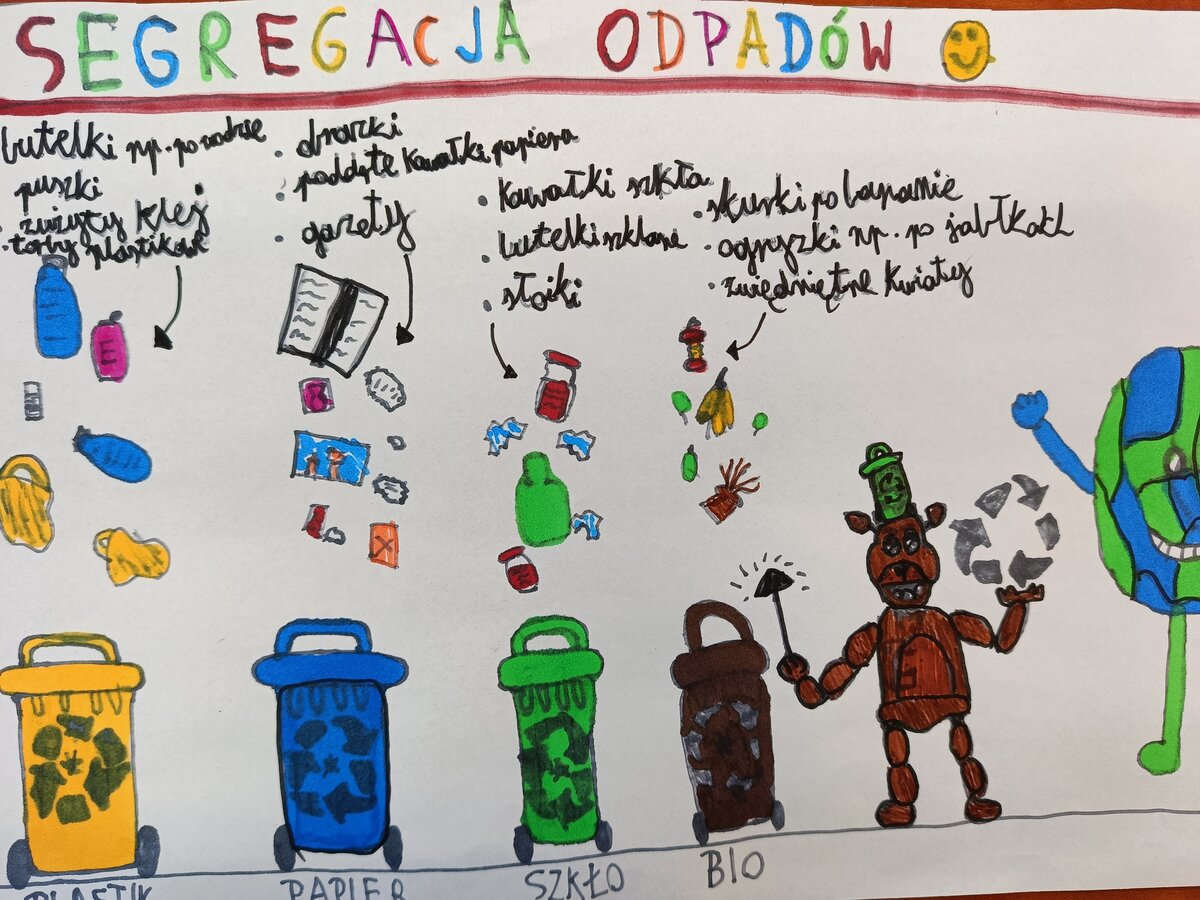 SEGREGACJA ODPADÓW
butelki np. po wodzie
puszki
• zużyty klej
• torby plastikowe
• druczki
• poddarte kawałki papieru
• gazety
• kawałki szkła
• butelki szklane
• słoiki
• skurki po bananie
• ogryzki np. po jabłkach
• zwiędniętne kwiaty
E
PLASTIK
PAPIER
SZKŁO
BIO